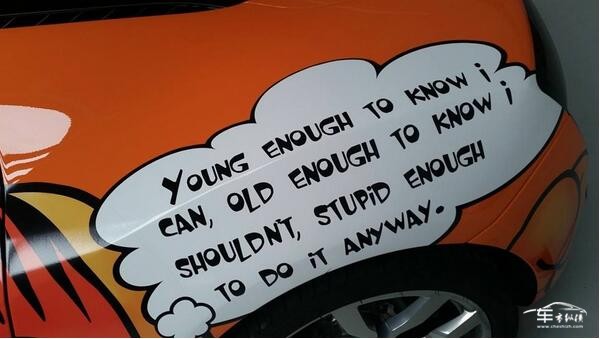 YOUNG ENOUGH TO KNOW i
CAN, OLD ENOUGH TO KNOW i
SHOULDN'T, STUPiD ENOUGH
TO DO iT ANYWAY.
车市纵横
www.cheshizh.com